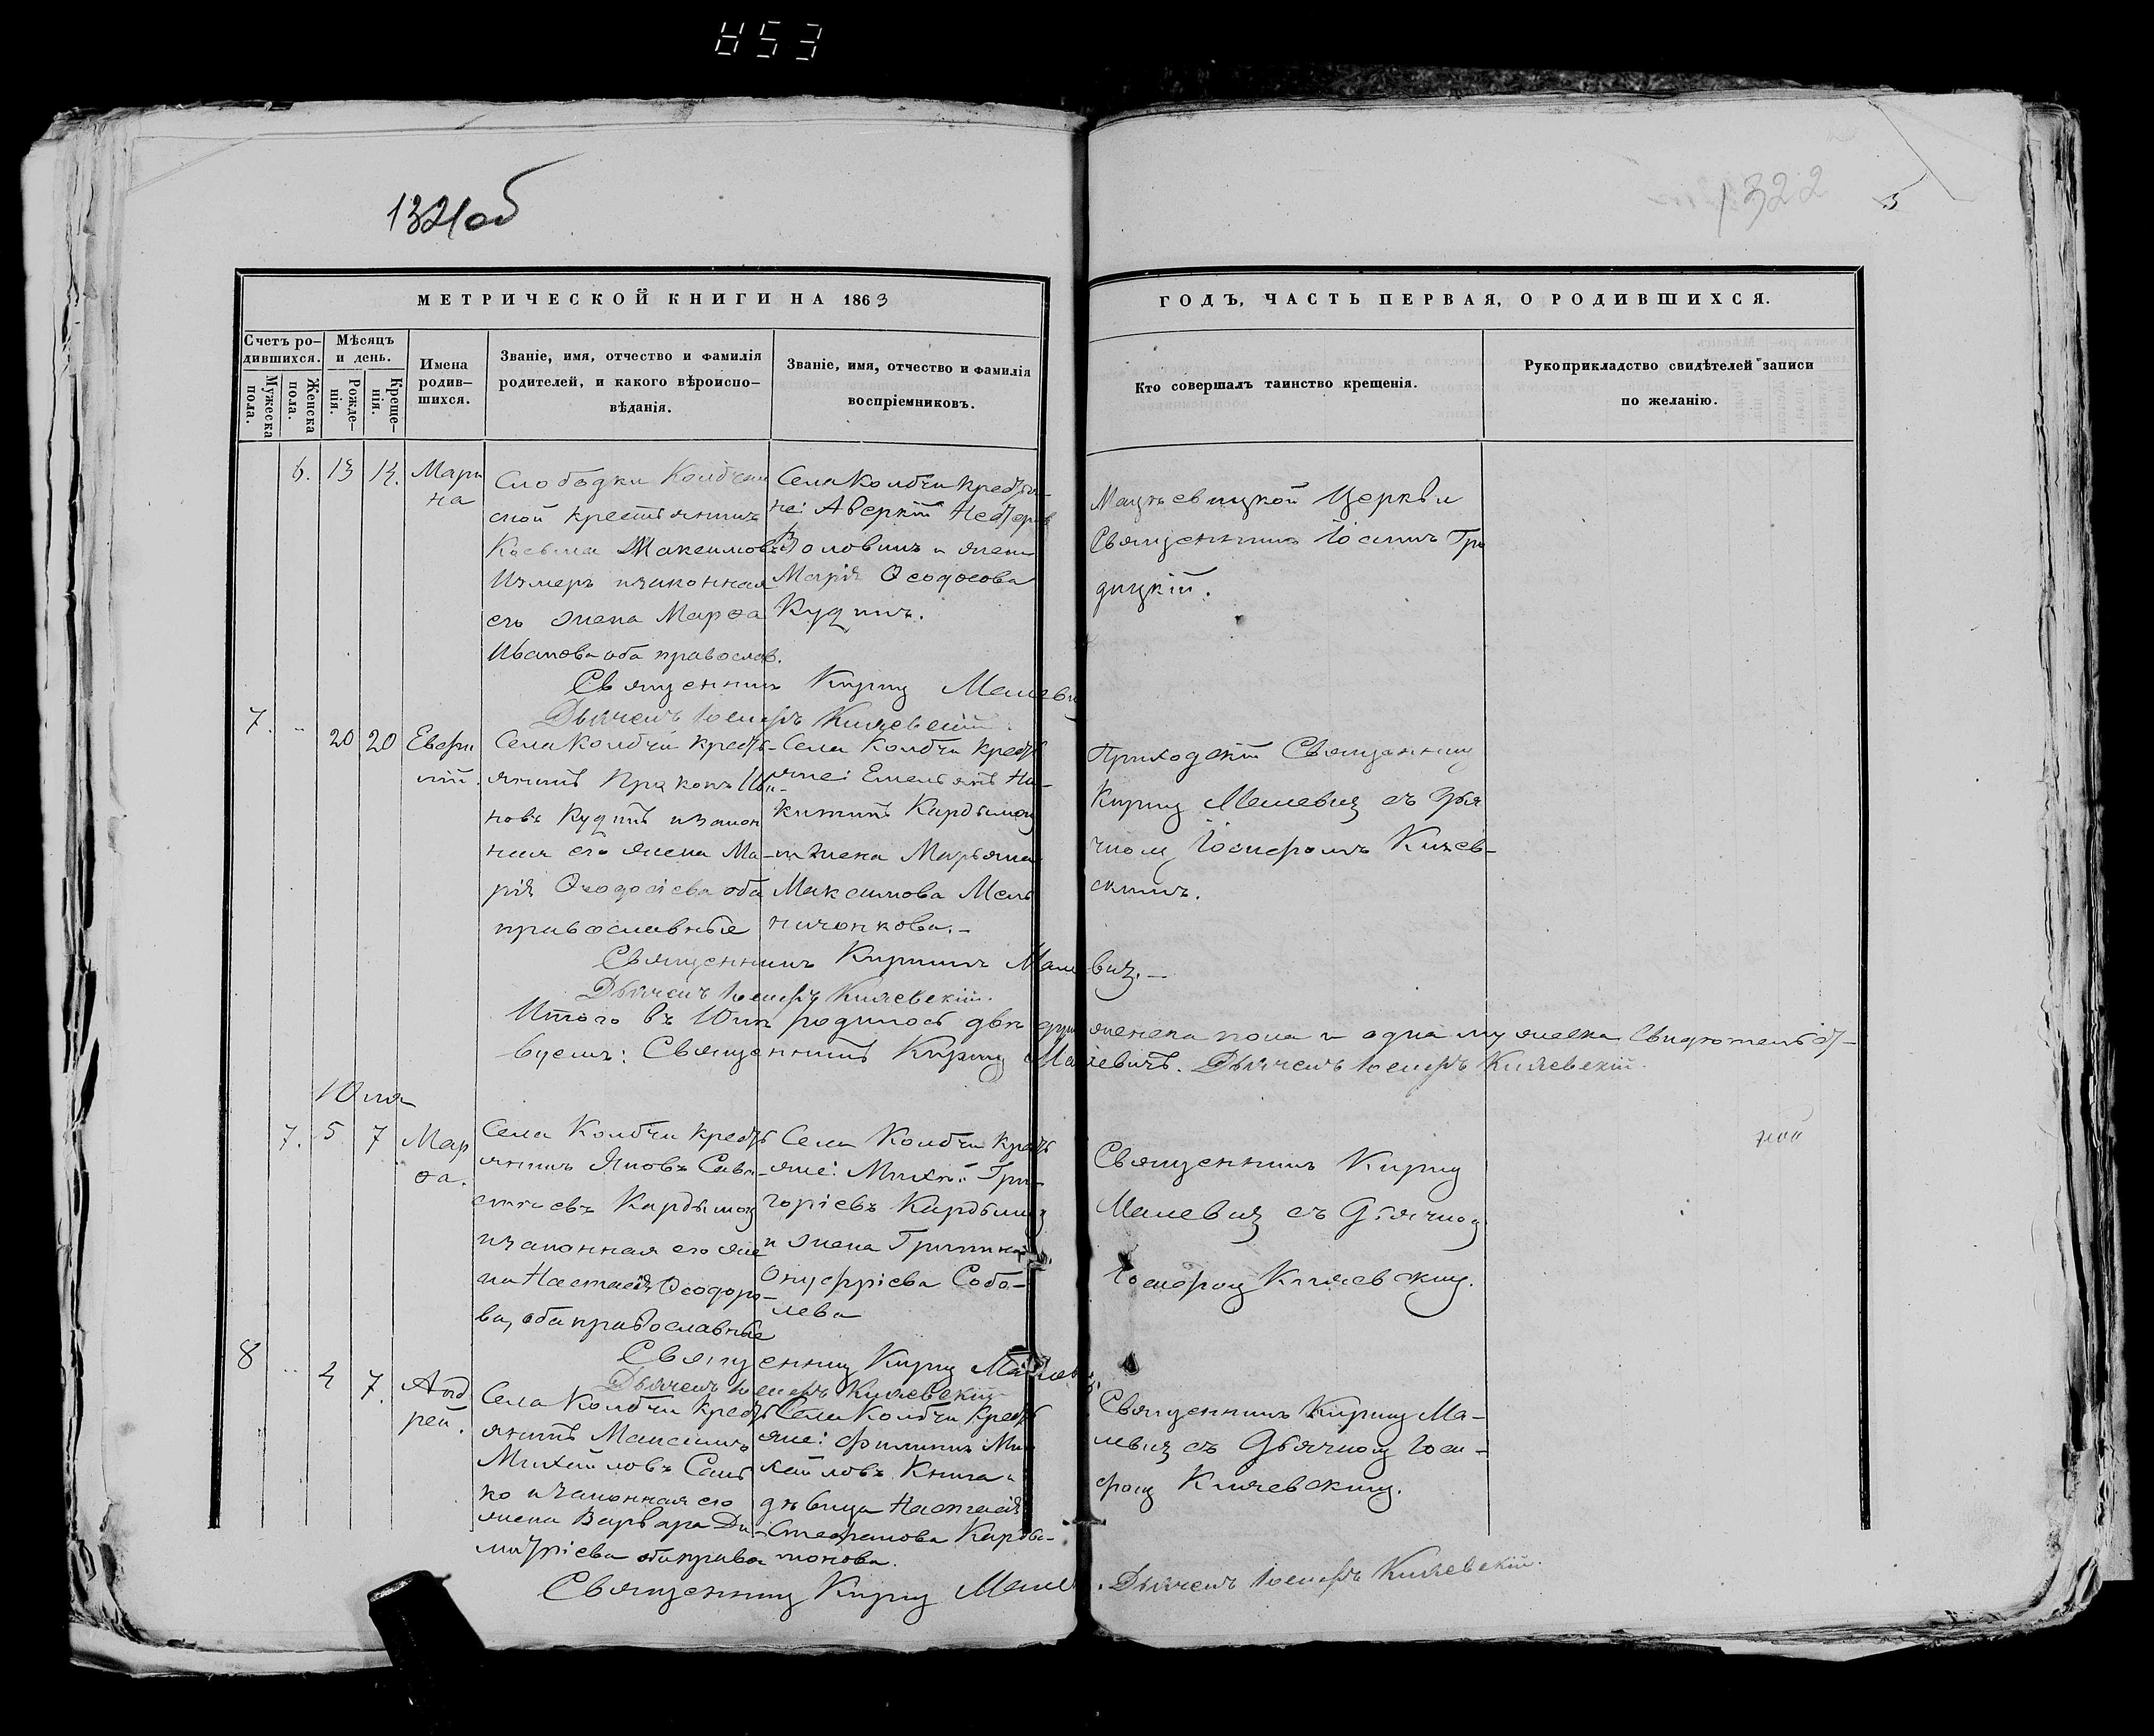 853
1321об
1322
5
МЕТРИЧЕСКОЙ КНИГИ НА 1863
ГОДЪ, ЧАСТЬ ПЕРВАЯ, О РОДИВШИХСЯ.
Счетъ ро-
дившихся.
Мужеска
пола.
Женска
пола.
Мѣсяцъ
и день.
Рожде-
нія.
Креще-
нія.
Имена
родив-
шихся.
Званіе, имя, отчество и фамилія
родителей, и какого вѣроиспо-
вѣданія.
Званіе, имя, отчество и фамилія
воспріемниковъ.
Кто совершалъ таинство крещенія.
Рукоприкладство свидѣтелей записи
по желанію.
6. 13 14.
Мари
на
Слободки Колбчан
ской крестьянинъ
Косьма Максимовъ
изаконная
его жена Марѳа
Иванова оба православ.
Села Колбчи крестья-
не: Аверкій Нестеровъ
и жена
Марія Ѳеодосова
Кудинъ.
Церкви
Священникъ Іоаннъ Гро
дицкій.
Священникъ Кирилъ Малевич
Дьячекъ Іосифъ Княжевскій.
7. " 20 20
Села Колбчи кресть-
янинъ Прокопъ Ива-
новъ Кудинъ изакон
ная его жена Ма-
рія Ѳеодосіева оба
православные
Села Колбчи кресть
яне: Емельянъ Ни-
китинъ Кардымон
и жена Марьяна
Максимова Мель
ниченкова.-
Приходскій Священникъ
Кирилъ Малевичъ съ дья
чкомъ Іосифомъ Княжев-
скимъ.
Священникъ Кириллъ Малевичъ.-
Дьячекъ Іосифъ Княжевскій.
Итого въ Юнѣ родилось двѣ душ женска пола и одна мужеска Свидѣтельст-
вуемъ: Священникъ Кирилъ Малевичъ. Дьячекъ Іосифъ Княжевскій.
Юля
7. 5 7
Мар
ѳа.
Села Колбчи кресть
янинъ Яковъ Сава-
стіевъ Кардымон
изаконная его же
на Настасія Ѳеодоро-
ва, оба православные
Села Колбчи кресть
яне: Михаилъ Гри-
горіевъ Кардымон
и жена
Онуфріева Собо-
лева
Священникъ Кирилъ
Малевичъ съ дьячком
Іосифом Княжевским.
Священникъ Кирилъ Малевич.
Дьячекъ Іосифъ Княжевскій
8 " 4 7.
Анд
рей.
Села Колбчи кресть
янинъ Максимъ
Михайловъ Сань
ко изаконная его
жена Варвара Ди-
митріева оба правос
Села Колбчи кресть
яне: Филипъ Ми
хайловъ Книга и
дѣвица Настасія
Стефанова Карды-
монова.
Священникъ Кирилъ Ма-
левичъ съ дьячком Іоси-
фом Княжевским.
Священникъ Кирилъ Малев. Дьячекъ Іосифъ Княжевскій.